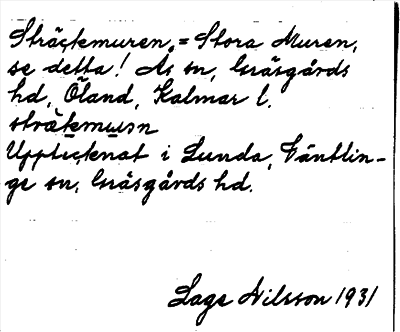 Sträckemuren, = Stora Muren,
se detta! Ås sn, Gräsgårds
hd, Öland, Kalmar l.
stràtemuɹn
Upptecknat i Lunda, Ventlin-
ge sn, Gräsgårds hd.
Lage Nilsson 1931